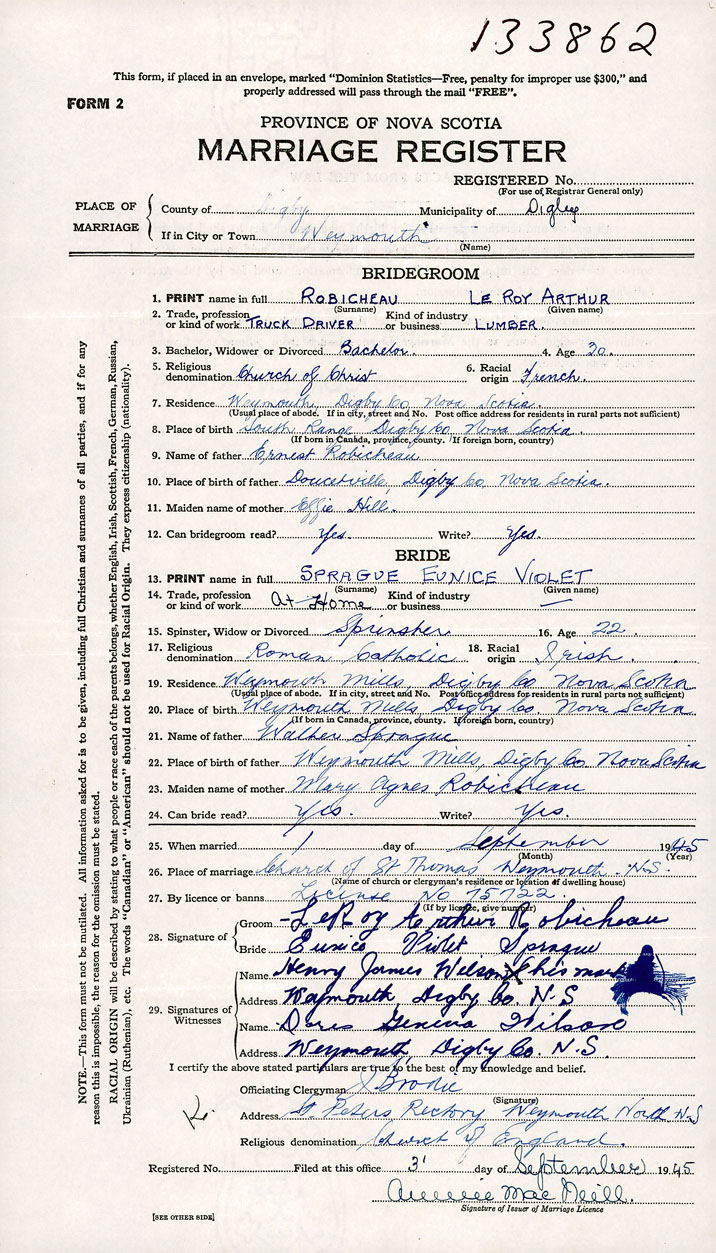 133862
This form, if placed in an envelope, marked “Dominion Statistics—Free, penalty for improper use $300,” and
properly addressed will pass through the mail “FREE”.
FORM 2
PROVINCE OF NOVA SCOTIA
MARRIAGE REGISTER
REGISTERED No.
(For use of Registrar General only)
PLACE OF MARRIAGE
County of Digby Municipality of Digby
If in City or Town Weymouth
(Name)
BRIDEGROOM
1. PRINT name in full ROBICHEAU LE ROY ARTHUR
(Surname) (Given name)
2. Trade, profession or kind of work TRUCK DRIVER Kind of industry or business LUMBER.
3. Bachelor, Widower or Divorced Bachelor. 4. Age 30.
5. Religious denomination Church of Christ 6. Racial origin French.
7. Residence Weymouth, Digby Co. Nova Scotia.
(Usual place of abode. If in city, street and No. Post office address for residents in rural parts not sufficient)
8. Place of birth South Range Digby Co. Nova Scotia.
(If born in Canada, province, county. If foreign born, country)
9. Name of father Ernest Robicheau
10. Place of birth of father Doucetville, Digby Co. Nova Scotia.
11. Maiden name of mother Effie Hill.
12. Can bridegroom read? Yes. Write? Yes.
BRIDE
13. PRINT name in full SPRAGUE EUNICE VIOLET
(Surname) (Given name)
14. Trade, profession or kind of work At Home Kind of industry or business —
15. Spinster, Widow or Divorced Spinster 16. Age 22.
17. Religious denomination Roman Catholic 18. Racial origin Irish.
19. Residence Weymouth Mills, Digby Co. Nova Scotia
(Usual place of abode. If in city, street and No. Post office address for residents in rural parts not sufficient)
20. Place of birth Weymouth Mills, Digby Co. Nova Scotia
(If born in Canada, province, county. If foreign born, country)
21. Name of father Walker Sprague
22. Place of birth of father Weymouth Mills, Digby Co Nova Scotia
23. Maiden name of mother Mary Agnes Robicheau
24. Can bride read? Yes. Write? Yes.
25. When married 1 day of September 1945
(Month) (Year)
26. Place of marriage Church of St Thomas Weymouth N.S.
(Name of church or clergyman's residence or location of dwelling house)
27. By licence or banns License No 75722.
(If by licence, give number)
28. Signature of
Groom LeRoy Arthur Robicheau
Bride Eunice Violet Sprague
29. Signatures of Witnesses
Name Henry James Wilson X his mark
Address Weymouth, Digby Co. N.S
Name Doris Geneva Wilson
Address Weymouth Digby Co. N.S.
I certify the above stated particulars are true to the best of my knowledge and belief.
Officiating Clergyman J Brodie
(Signature)
Address St Peters Rectory Weymouth North N.S
Religious denomination Church of England.
Registered No. Filed at this office 3 day of September 1945
Annie Mac Neill.
Signature of Issuer of Marriage Licence
[SEE OTHER SIDE]
NOTE.—This form must not be mutilated. All information asked for is to be given, including full Christian and surnames of all parties, and if for any
reason this is impossible, the reason for the omission must be stated.
RACIAL ORIGIN will be described by stating to what people or race each of the parents belongs, whether English, Irish, Scottish, French, German, Russian,
Ukrainian (Ruthenian), etc. The words “Canadian” or “American” should not be used for Racial Origin. They express citizenship (nationality).